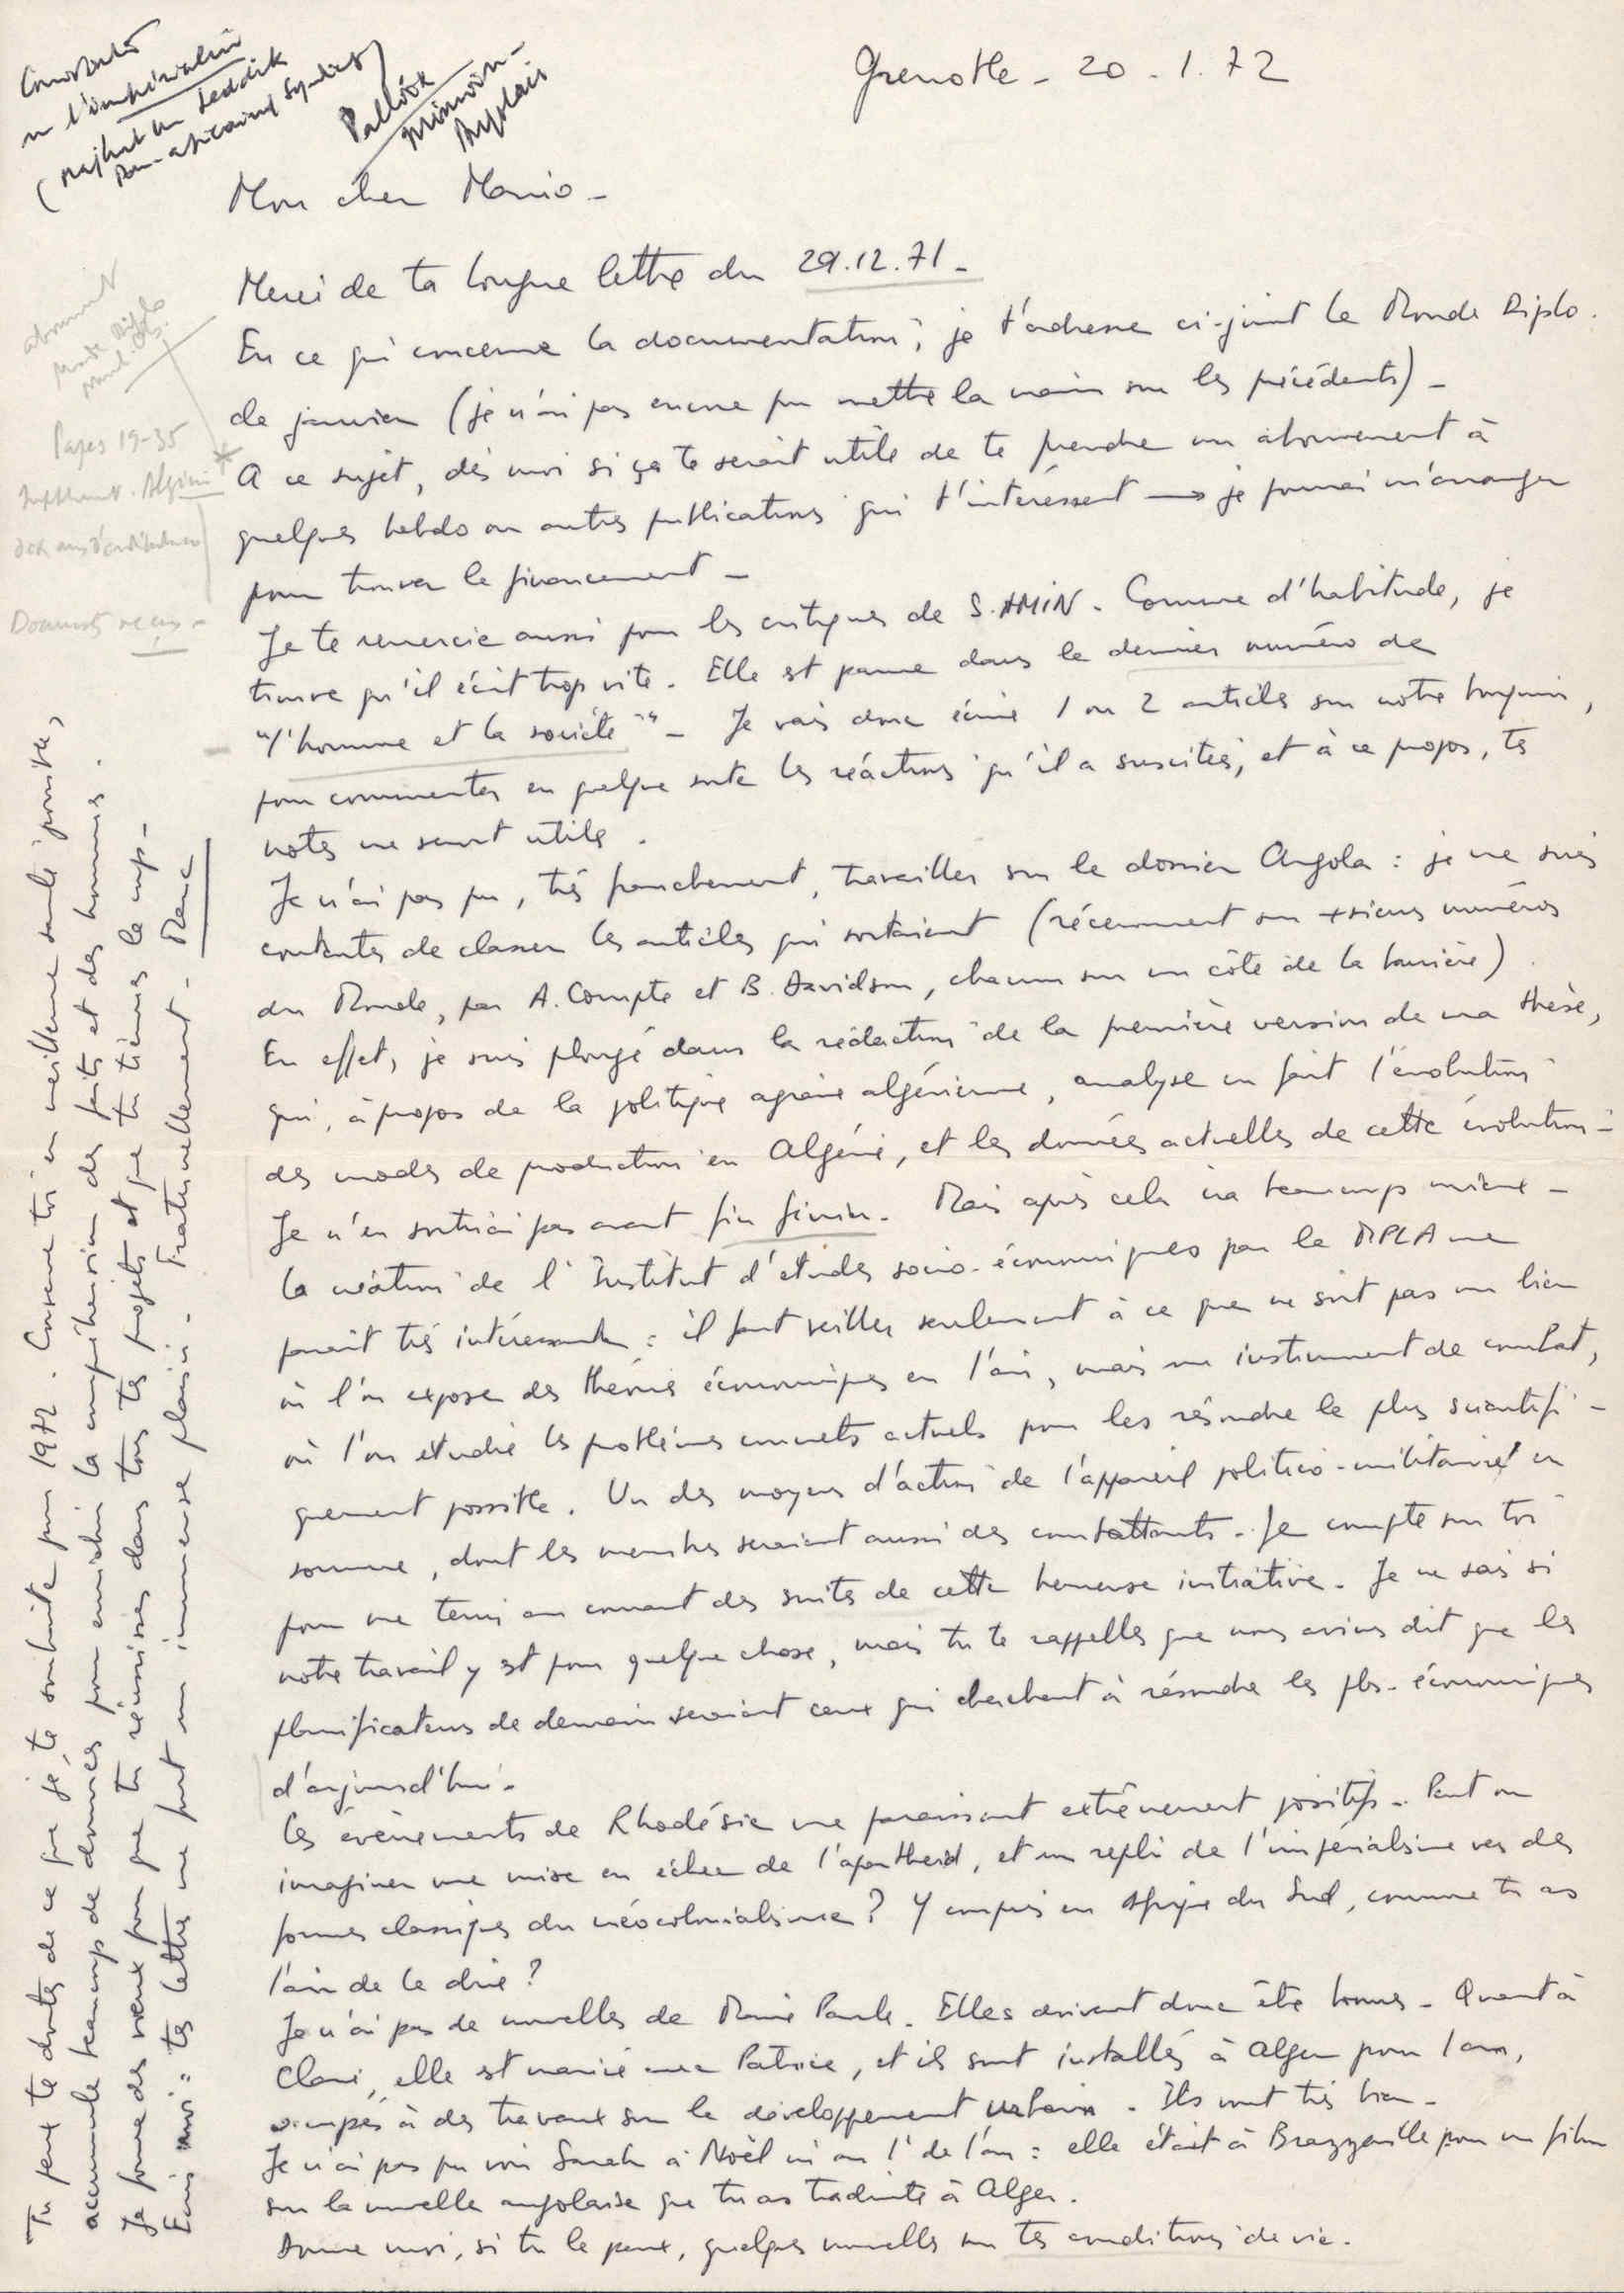 Grenoble - 20 - 1. 72
l'impérialisme
Pan-africaine Syndicat)
Mon cher Mario -
Merci de ta longue lettre du 29.12.71 -
En ce qui concerne la documentation, je t'adresse ci-joint le Monde Diplo.
de janvier (je n'ai pas encore pu mettre la main sur les précédents) -
A ce sujet, dis moi si ça te serait utile de te prendre un abonnement à
quelques hebdo ou autres publications qui t'intéressent → je pourrai m'arranger
pour trouver le financement -
Je te remercie aussi pour les critiques de S. AMIN. Comme d'habitude, je
trouve qu'il écrit trop vite. Elle est parue dans le dernier numéro de
"l'homme et la société" - Je vais donc écrire 1 ou 2 articles sur notre bouquin,
pour commenter en quelque sorte les réactions qu'il a suscitées, et à ce propos, tes
notes me seront utiles.
Je n'ai pas pu, très franchement, travailler sur le dossier Angola : je me suis
contenté de classer les articles qui sortaient (récemment sur +sieurs numéros
du Monde, par A. Compte et B. Davidson, chacun sur un côté de la barrière).
En effet, je suis plongé dans la rédaction de la première version de ma thèse,
qui, à propos de la politique agraire algérienne, analyse en fait l'évolution
des modes de production en Algérie, et les données actuelles de cette évolution -
Je n'en sortirai pas avant fin février. Mais après cela ira beaucoup mieux -
La création de l'Institut d'études socio-économiques par le MPLA me
parait très intéressante : il faut veiller seulement à ce que ce ne soit pas un lieu
où l'on expose des théories économiques en l'air, mais un instrument de combat,
où l'on étudie les problèmes concrets actuels pour les résoudre le plus scientifi-
quement possible. Un des moyens d'action de l'appareil politico-militaire en
somme, dont les membres seraient aussi des combattants. Je compte sur toi
pour me tenir au courant des suites de cette heureuse initiative. Je ne sais si
notre travail y est pour quelque chose, mais tu te rappelles que nous avions dit que les
planificateurs de demain seraient ceux qui cherchent à résoudre les pbs. économiques
d'aujourd'hui.
Les évènements de Rhodésie me paraissent extrêmement positifs. Peut on
imaginer une mise en échec de l'apartheid, et un repli de l'impérialisme vers des
formes classiques du néocolonialisme ? Y compris en Afrique du Sud, comme tu as
l'air de le dire ?
Je n'ai pas de nouvelles de Marie Paule. Elles doivent donc être bonnes. Quant à
Claire, elle est mariée avec Patrice, et ils sont installés à Alger pour 1 an,
occupés à des travaux sur le développement urbain. Ils vont très bien -
Je n'ai pas pu voir Sarah à Noël ni au 1° de l'an : elle était à Brazzaville pour un film
sur la nouvelle angolaise que tu as traduite à Alger.
Donne moi, si tu le peux, quelques nouvelles sur tes conditions de vie.
Tu peux te douter de ce que je te souhaite pour 1972. Conserve toi en meilleure santé possible,
accumule beaucoup de données pour enrichir la compréhension des faits et des hommes.
Je forme des vœux pour que tu réussisses dans tous tes projets et que tu tiennes le coup -
Ecris moi : tes lettres me font un immense plaisir. Fraternellement -
Pages 19-35
Documents reçus -